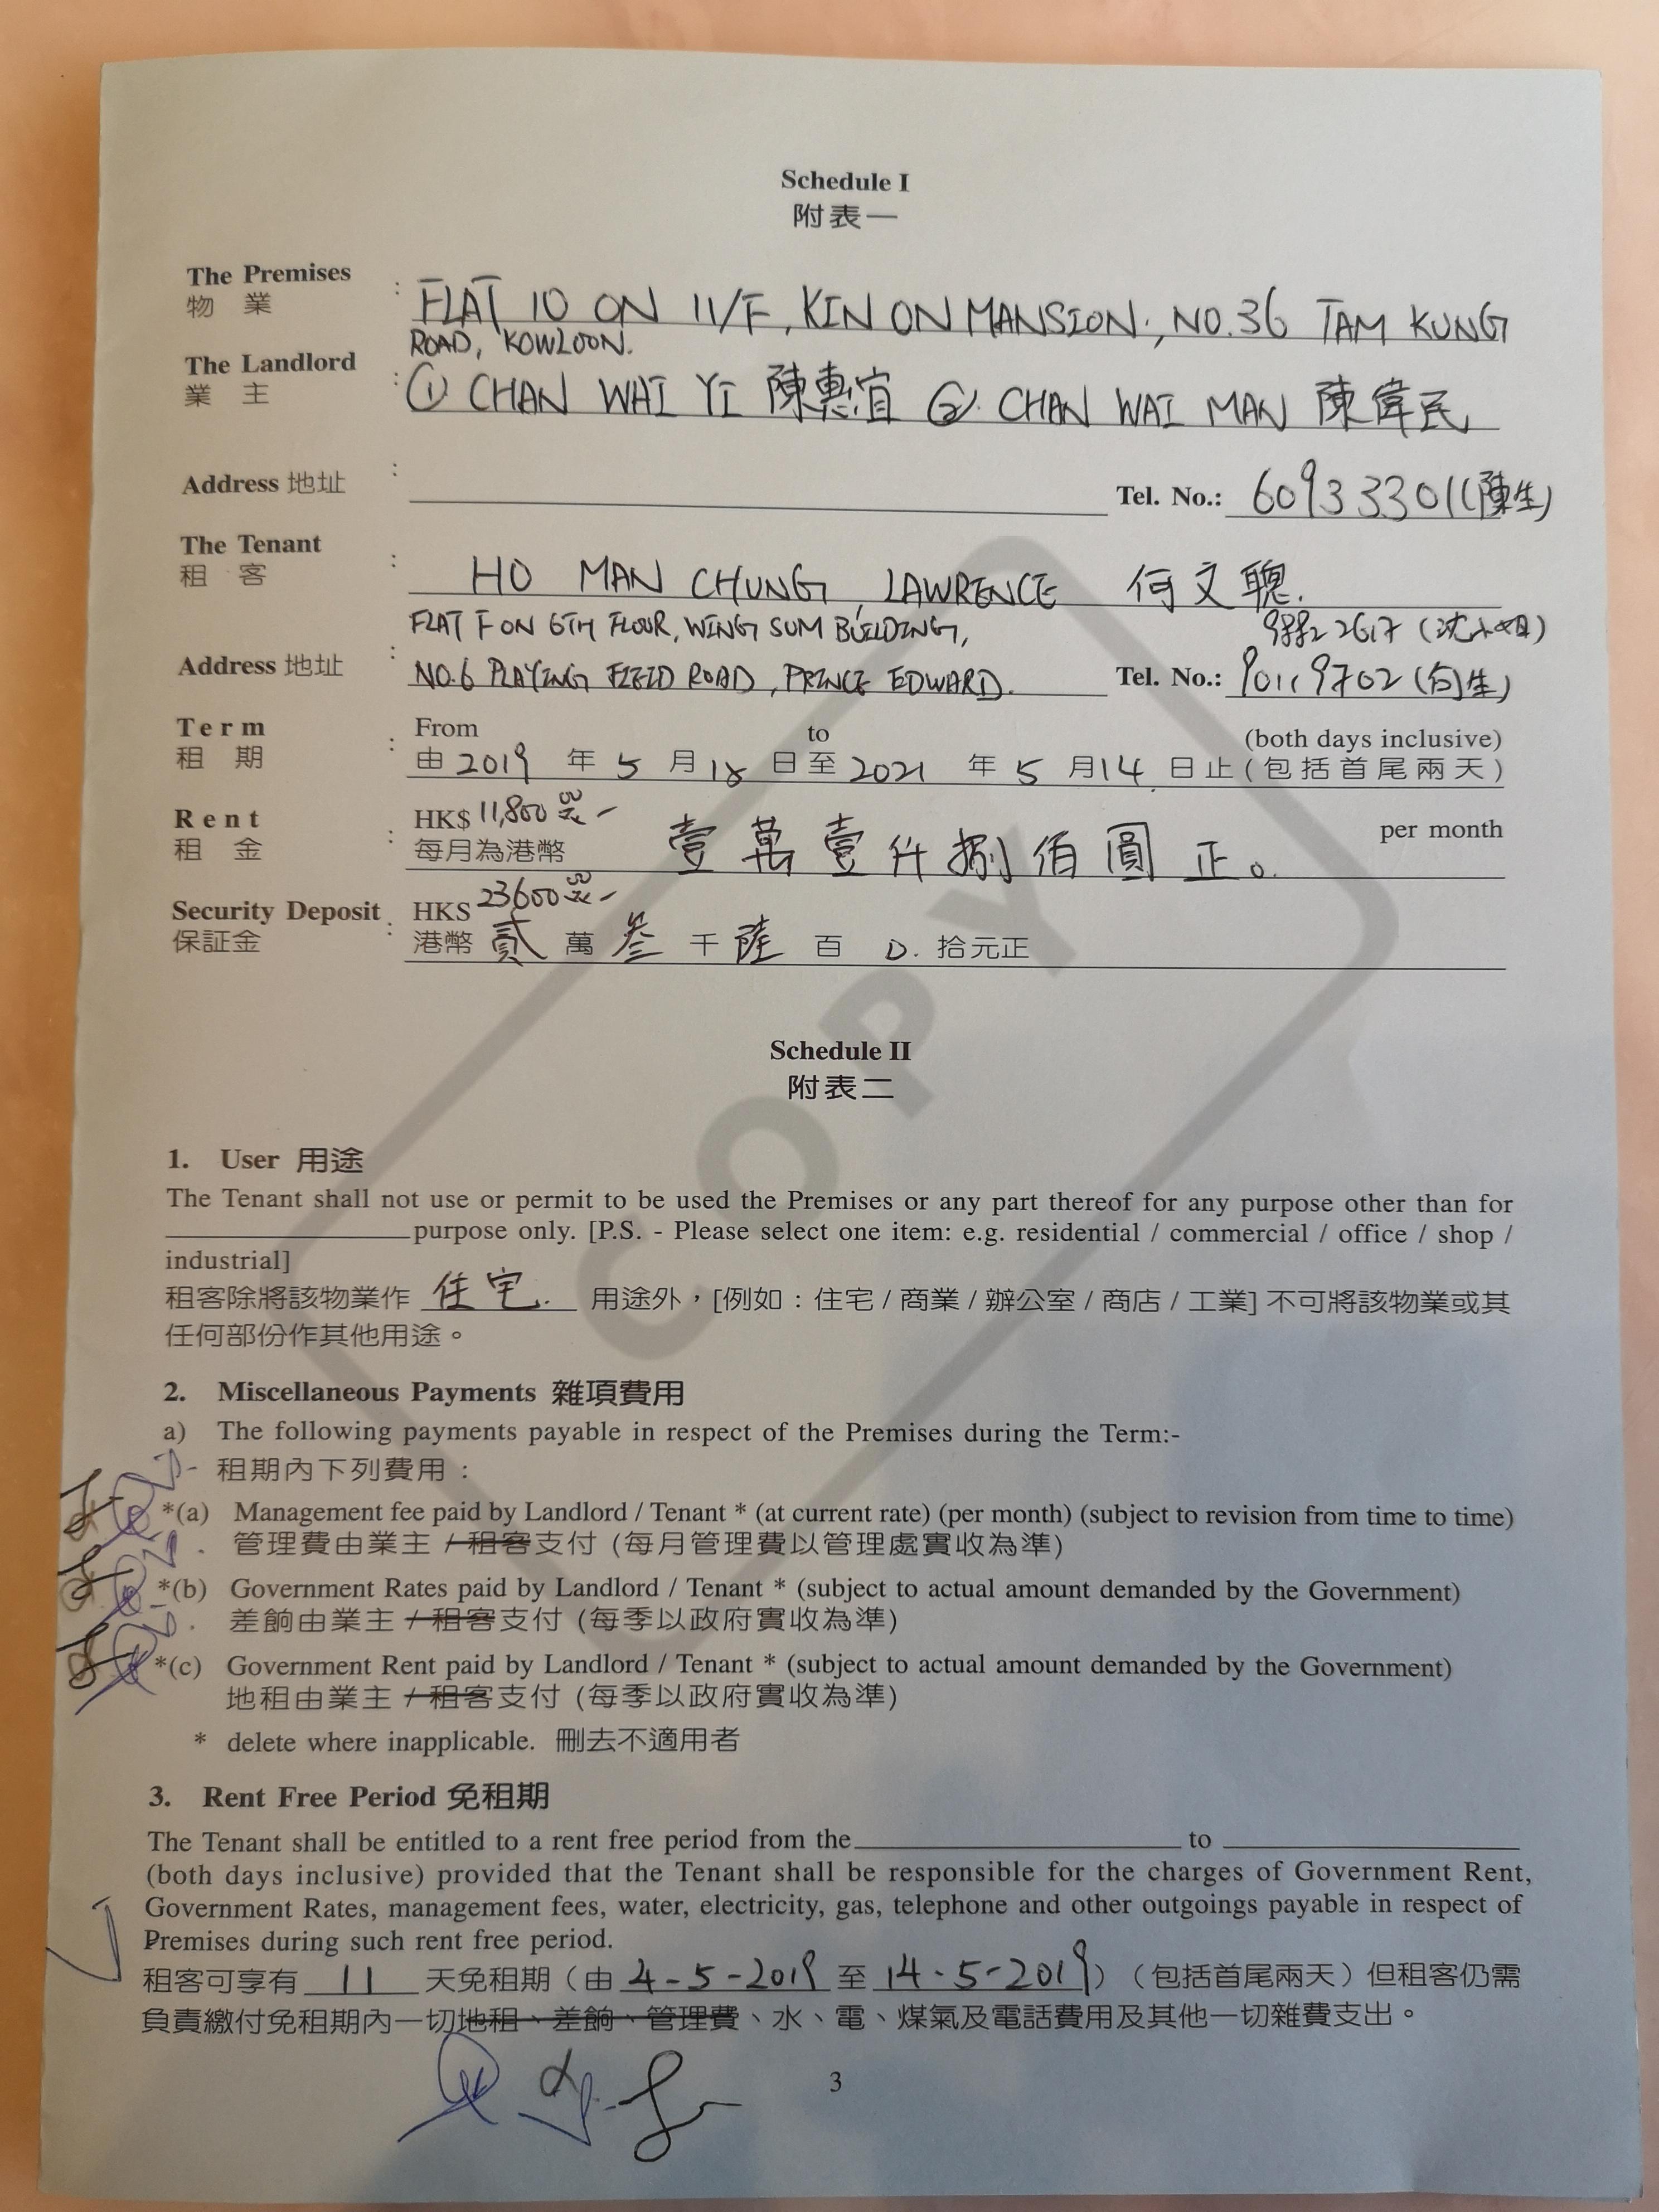 Schedule I
附表一
The Premises : FLAT 10 ON 11/F, KIN ON MANSION, NO.36 TAM KUNG
物 業 ROAD, KOWLOON.
The Landlord : ① CHAN WAI YI 陳惠宜 ② CHAN WAI MAN 陳偉民
業 主
Address 地址 : Tel. No.: 60933301(陳生)
The Tenant : HO MAN CHUNG, LAWRENCE 何文聰.
租 客
FLAT F ON 6TH FLOOR, WING SUM BUILDING, 98822617 (沈小姐)
Address 地址 : NO.6 PLAYING FIELD ROAD, PRINCE EDWARD. Tel. No.: 90119702 (何生)
Term From to (both days inclusive)
租 期 : 由 2019 年 5 月 日至 2021 年 5 月 14 日止 (包括首尾兩天)
Rent : HK$ 11,800 per month
租 金 每月為港幣 壹萬壹仟捌佰圓正。
Security Deposit : HK$ 23600
保証金 港幣 貳 萬 叁 千 陸 百 0. 拾元正
Schedule II
附表二
1. User 用途
The Tenant shall not use or permit to be used the Premises or any part thereof for any purpose other than for
purpose only. [P.S. - Please select one item: e.g. residential / commercial / office / shop /
industrial]
租客除將該物業作 住宅. 用途外，[例如：住宅 / 商業 / 辦公室 / 商店 / 工業] 不可將該物業或其
任何部份作其他用途。
2. Miscellaneous Payments 雜項費用
a) The following payments payable in respect of the Premises during the Term:-
租期內下列費用：
*(a) Management fee paid by Landlord / Tenant * (at current rate) (per month) (subject to revision from time to time)
管理費由業主 / 租客支付 (每月管理費以管理處實收為準)
*(b) Government Rates paid by Landlord / Tenant * (subject to actual amount demanded by the Government)
差餉由業主 / 租客支付 (每季以政府實收為準)
*(c) Government Rent paid by Landlord / Tenant * (subject to actual amount demanded by the Government)
地租由業主 / 租客支付 (每季以政府實收為準)
* delete where inapplicable. 刪去不適用者
3. Rent Free Period 免租期
The Tenant shall be entitled to a rent free period from the to
(both days inclusive) provided that the Tenant shall be responsible for the charges of Government Rent,
Government Rates, management fees, water, electricity, gas, telephone and other outgoings payable in respect of
Premises during such rent free period.
租客可享有 11 天免租期（由 4-5-2019 至 14-5-2019）（包括首尾兩天）但租客仍需
負責繳付免租期內一切地租、差餉、管理費、水、電、煤氣及電話費用及其他一切雜費支出。
3
COPY